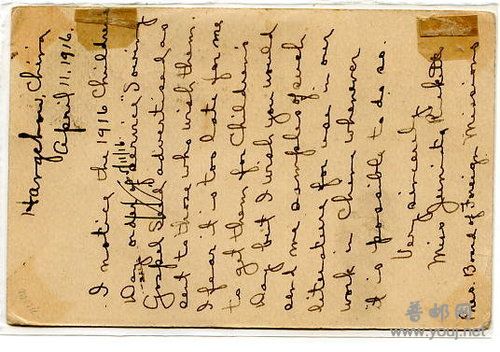 Hangchow, China
April 11, 1916.
I notice the 1916 Children's
Day order of service "Sowing
Gospel Seed" advertised as
sent to those who wish them.
I fear it is too late for me
to get them for Children's
Day but I wish you would
send me samples of such
literature for use in our
work in China whenever
it is possible to do so.
Very sincerely
Miss Juniata Ricketts
Board of Foreign Missions
普邮网
www.youj.net